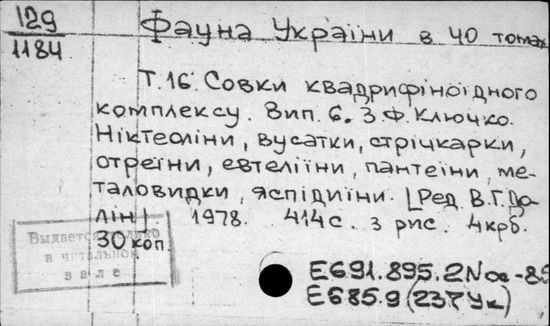 129
1184
Фауна України в 40 томах
Т.16. Совки квадрифіноїдного
комплексу. Вип. 6. З.Ф. Ключко.
Ніктеоліни, вусатки, стрічкарки,
отреїни, евтеліїни, пантеїни, ме-
таловидки, яспідиїни. [Ред. В.Г. До-
лін] 1978. 414 с. з рис. 4крб.
30 коп.
Выдается только
в читальном
зале
Е691.895.2Noc-85
Е685.9 (237Ук)